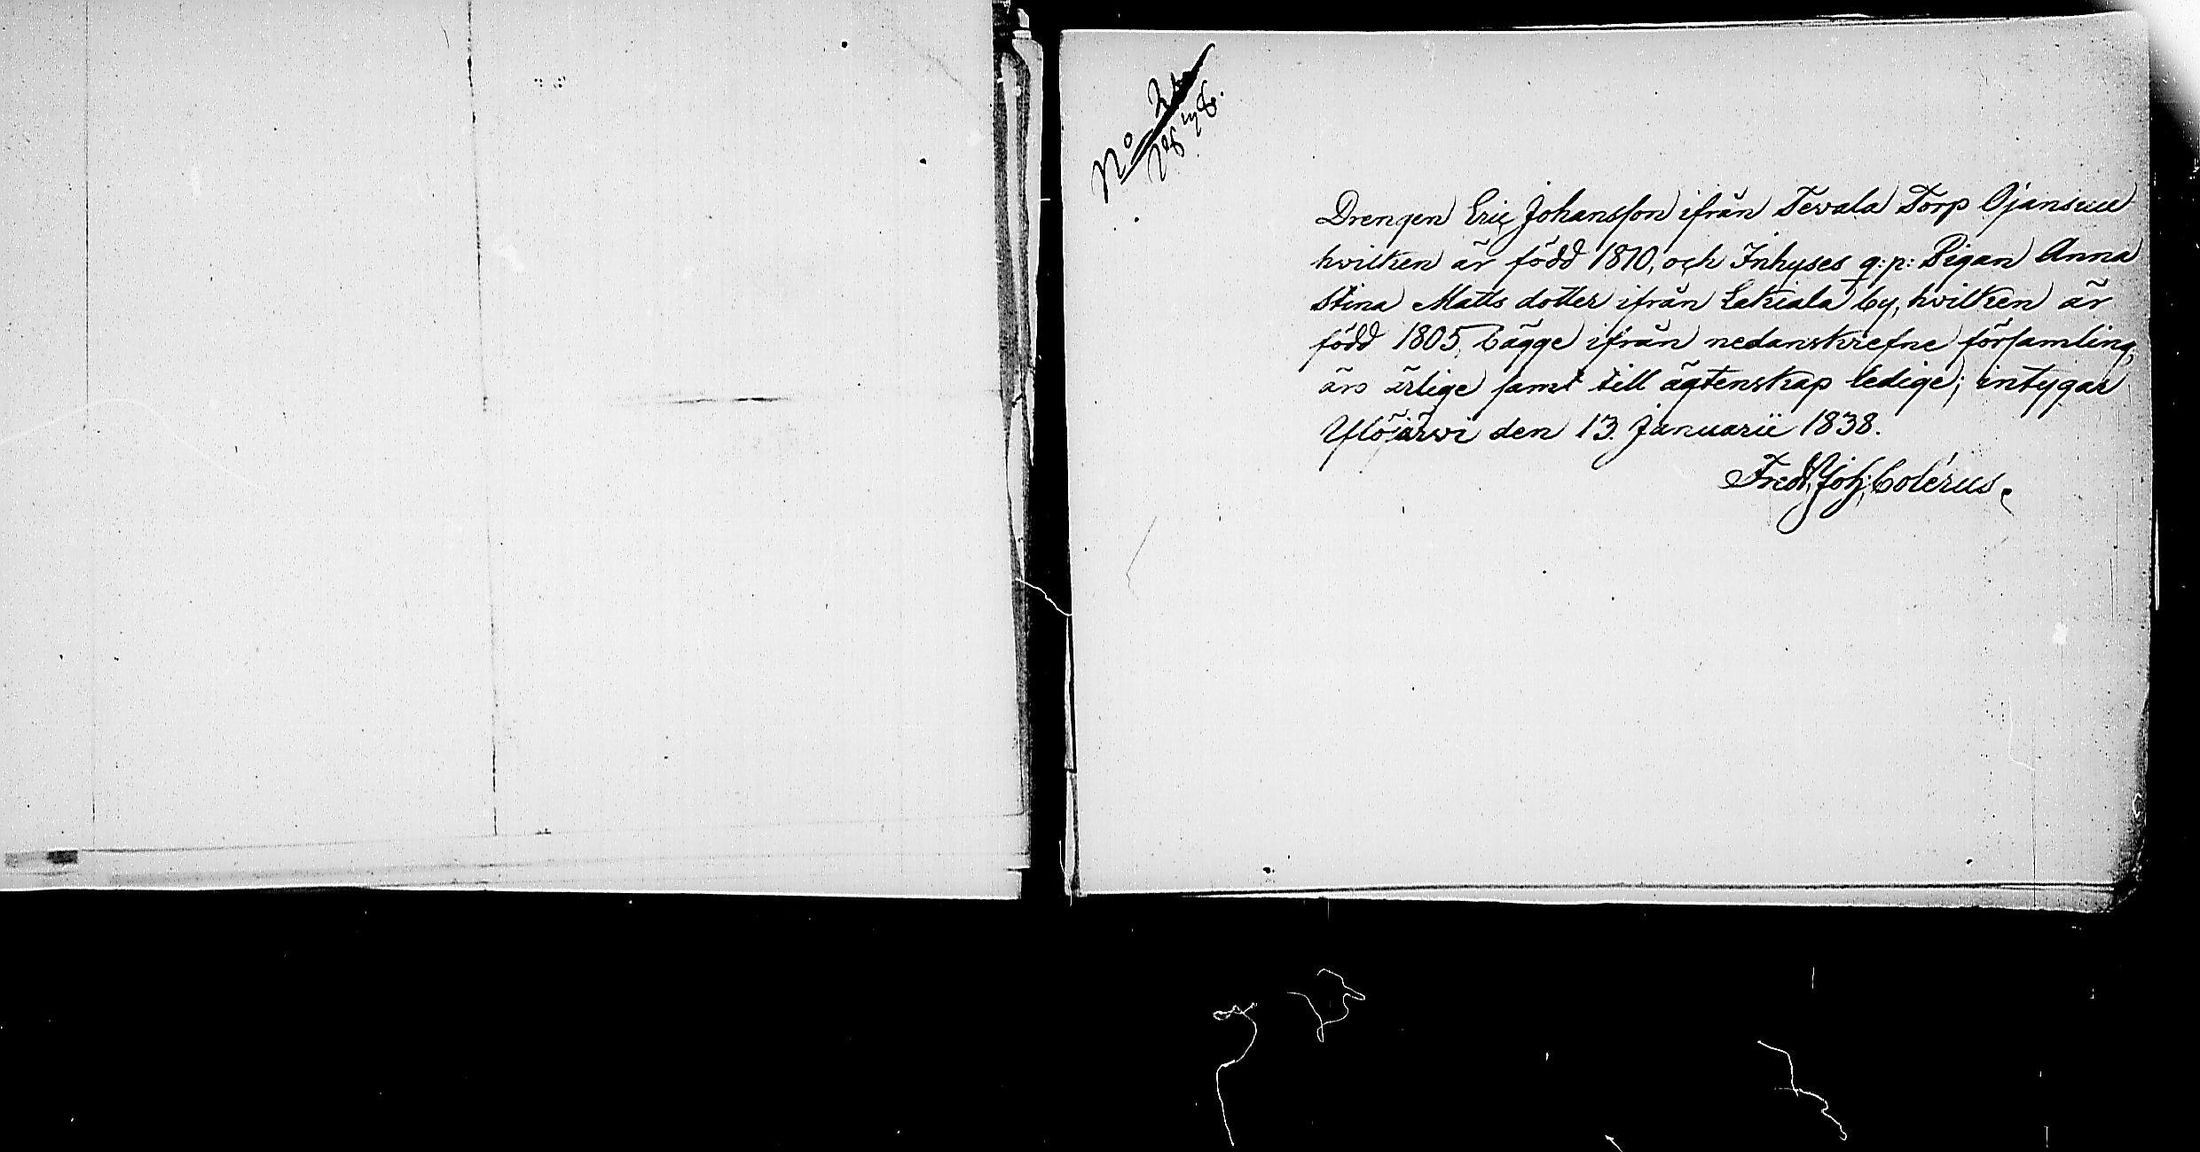 No
Drengen Eric Johansson ifrån Tevala Torp Ojansuu
hvilken är född 1810, och Inhyses q:p: Pigan Anna
Stina Matts dotter ifrån Lakiala by, hvilken är
född 1805, bägge ifrån nedanskrefne församling,
äro ärlige samt till ägtenskap ledige; intygar
Ylöjärvi den 13. Januarii 1838.
Fredr. Joh: Colérus.